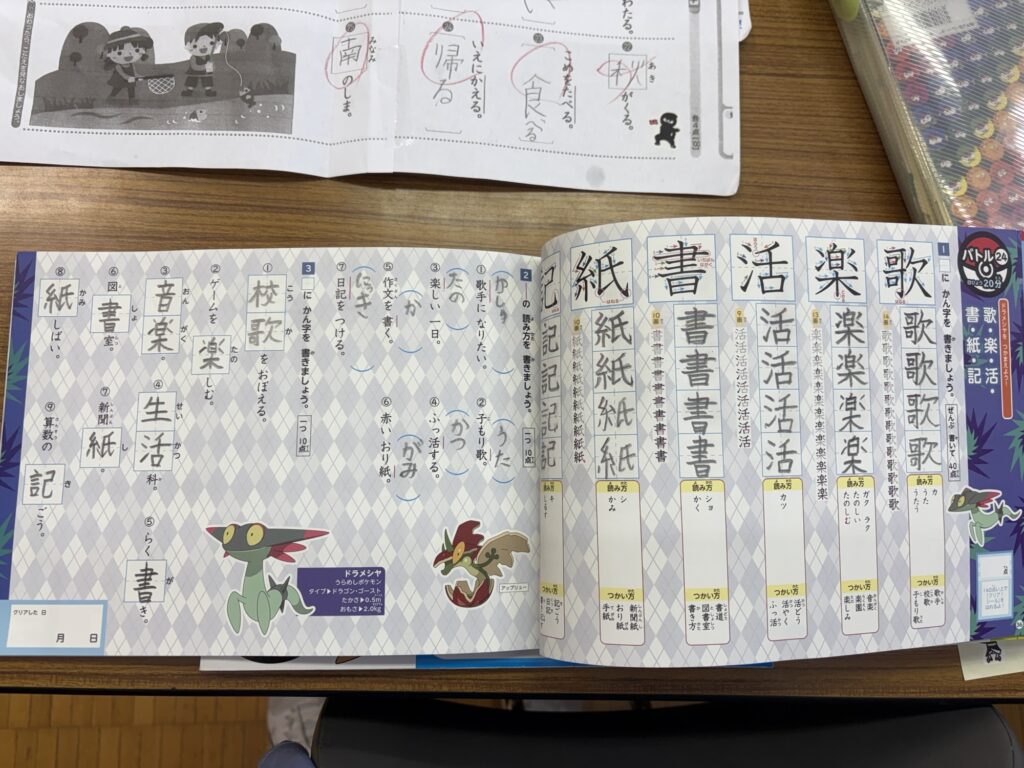 わたる。
秋がくる。
あき
こめをたべる。
食べる
いえにかえる。
帰る
南のしま。
みなみ
各4点
バトル24
20分
ドラメシヤを つかまえよう!
歌・楽・活・
書・紙・記
1 □に かん字を 書きましょう。 ぜんぶ 書いて40点
歌
歌歌歌歌
読み方
カ
うた
うたう
つかい方
歌手
校歌
子もり歌
楽
楽楽楽楽
読み方
ガク ラク
たのしい
たのしむ
つかい方
音楽
楽園
楽しみ
活
活活活活
読み方
カツ
つかい方
活どう
活やく
ふっ活
書
書書書書
読み方
ショ
かく
つかい方
書道
図書室
書き方
紙
紙紙紙紙
読み方
シ
かみ
つかい方
新聞紙
おり紙
手紙
記
記記記記
キ
しるす
2 の 読み方を 書きましょう。 一つ10点
①歌手に なりたい。
かしゅ
②子もり歌。
うた
③楽しい 一日。
たの
④ふっ活する。
かつ
⑤作文を 書く。
か
⑥赤い おり紙。
がみ
⑦日記を つける。
にっき
3 □に かん字を 書きましょう。 一つ10点
①校歌を、おぼえる。
こう か
②ゲームを 楽しむ。
たの
③音楽。
おん がく
④生活科。
せい かつ
⑤らく書き。
が
⑥図書室。
しょ
⑦新聞紙。
し
⑧紙しばい。
かみ
⑨算数の 記ごう。
き
アップリュー
ドラメシヤ
うらめしポケモン
タイプ▶ドラゴン・ゴースト
たかさ▶0.5m
おもさ▶2.0kg
クリアした 日
月 日